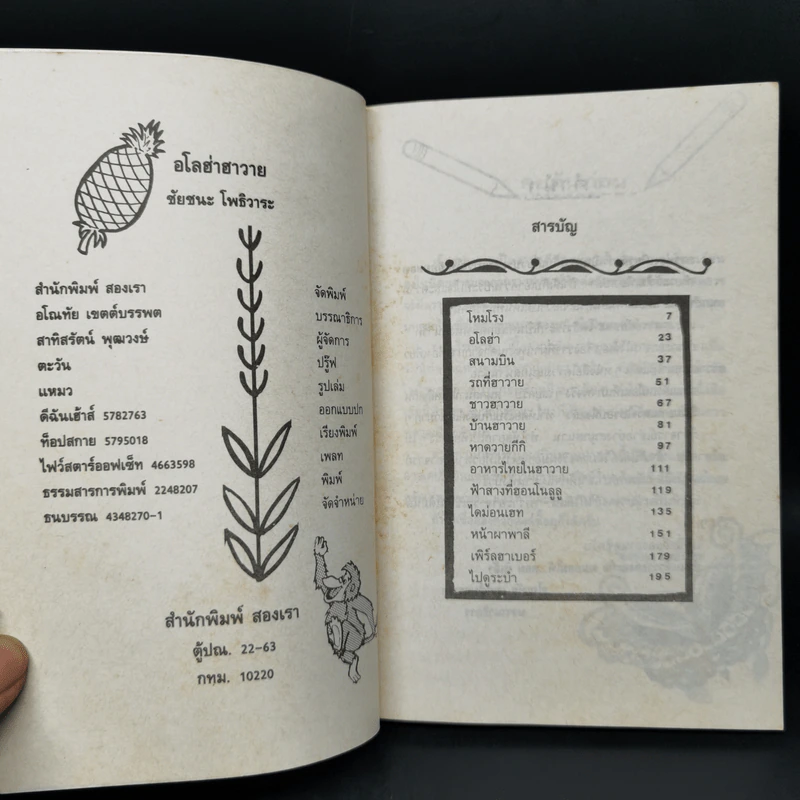 อโลฮ่าฮาวาย
ชัยชนะ โพธิวาระ
สำนักพิมพ์ สองเรา จัดพิมพ์
อโณทัย เขตต์บรรพต บรรณาธิการ
สาทิสรัตน์ พุฒวงษ์ ผู้จัดการ
ตะวัน ปรู๊ฟ
แหมว รูปเล่ม
ดีฉันเฮ้าส์ 5782763 ออกแบบปก
ท็อปสกาย 5795018 เรียงพิมพ์
ไฟว์สตาร์ออฟเซ็ท 4663598 เพลท
ธรรมสารการพิมพ์ 2248207 พิมพ์
ธนบรรณ 4348270-1 จัดจำหน่าย
สำนักพิมพ์ สองเรา
ตู้ปณ. 22-63
กทม. 10220
สารบัญ
โหมโรง 7
อโลฮ่า 23
สนามบิน 37
รถที่ฮาวาย 51
ชาวฮาวาย 67
บ้านฮาวาย 81
หาดวายกีกิ 97
อาหารไทยในฮาวาย 111
ฟ้าสางที่ฮอนโนลูลู 119
ไดม่อนเฮท 135
หน้าผาพาลี 151
เพิร์ลฮาเบอร์ 179
ไปดูระบำ 195